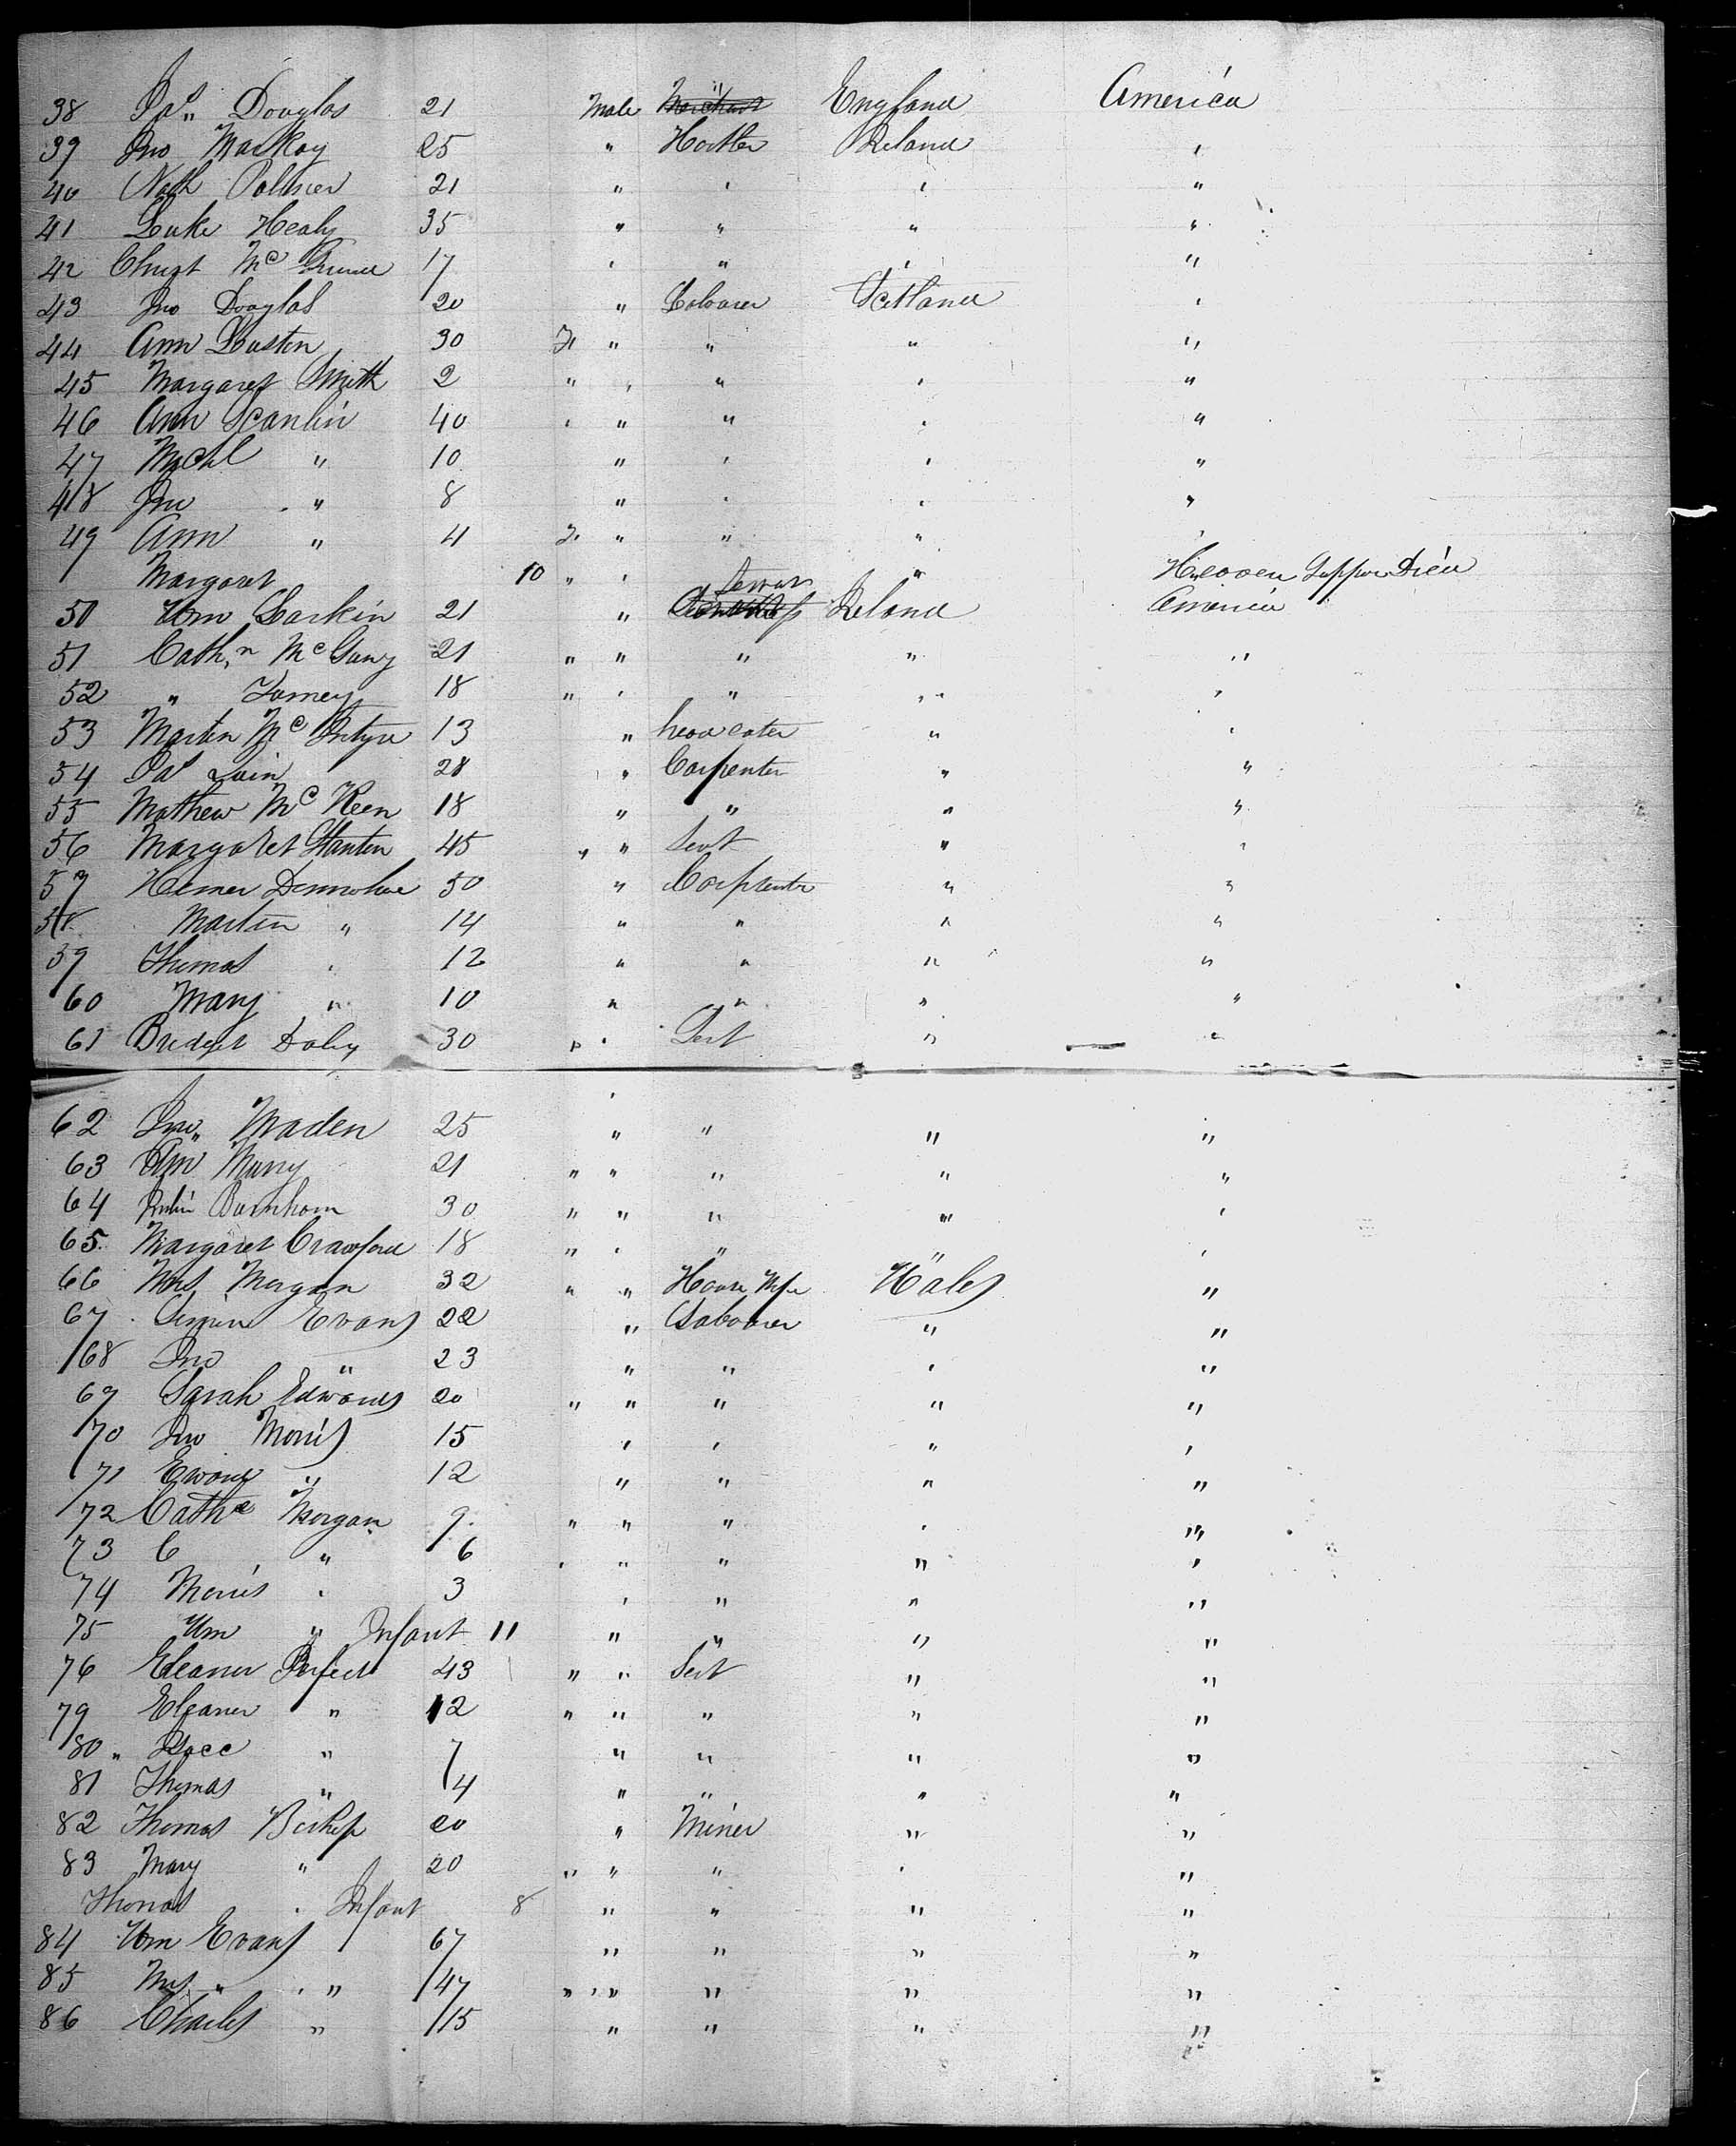 38 Jas Douglas 21 Male England America
39 Jno MacKay 25 " Hostler Ireland "
40 Nath Palmer 21 " " " "
41 Luke Healy 35 " " " "
42 Christ Mc 17 " " " "
43 Jno Douglas 20 " Labourer Scotland "
44 Ann 30 F " " " "
45 Margaret Smith 2 " " " " "
46 Ann Scanlin 40 " " " " "
47 Michl " 10 " " " "
48 Jno " 8 " " " "
49 Ann " 4 F " " " "
Margaret 10 " " "
50 Wm Larkin 21 " Ireland America
51 Cath.n Mc 21 " " " " "
52 " 18 " " " " "
53 Martin Mc Intyre 13 " " "
54 Pat 28 " Carpenter " "
55 Mathew Mc Keen 18 " " " "
56 Margaret Stanton 45 " " Servt " "
57 50 " Carpenter " "
58 Martin " 14 " " " "
59 Thomas " 12 " " " "
60 Mary " 10 " " " "
61 Bridget Daley 30 " " Sert " "
62 Jno Maden 25 " " " "
63 Ann 21 " " " " "
64 Burnham 30 " " " " "
65 Margaret Crawford 18 " " " " "
66 Mrs Morgan 32 " " House Wales "
67 Evans 22 " Labourer " "
68 Jno " 23 " " " "
69 Sarah Edwards 20 " " " " "
70 Jno Morris 15 " " " "
71 Edward " 12 " " " "
72 Cathe Morgan 9 " " " " "
73 C " 6 " " " " "
74 Morris " 3 " " " "
75 Wm " Infant 11 " " " "
76 Eleanor Perfect 43 " " Sert " "
79 Eleanor " 12 " " " " "
80 " " 7 " " " "
81 Thomas " 4 " " " "
82 Thomas Bishop 20 " Miner " "
83 Mary " 20 " " " " "
Thomas " Infant 8 " " " "
84 Wm Evans 67 " " " "
85 Mrs " " 47 " " " " "
86 Charles " 15 " " " "